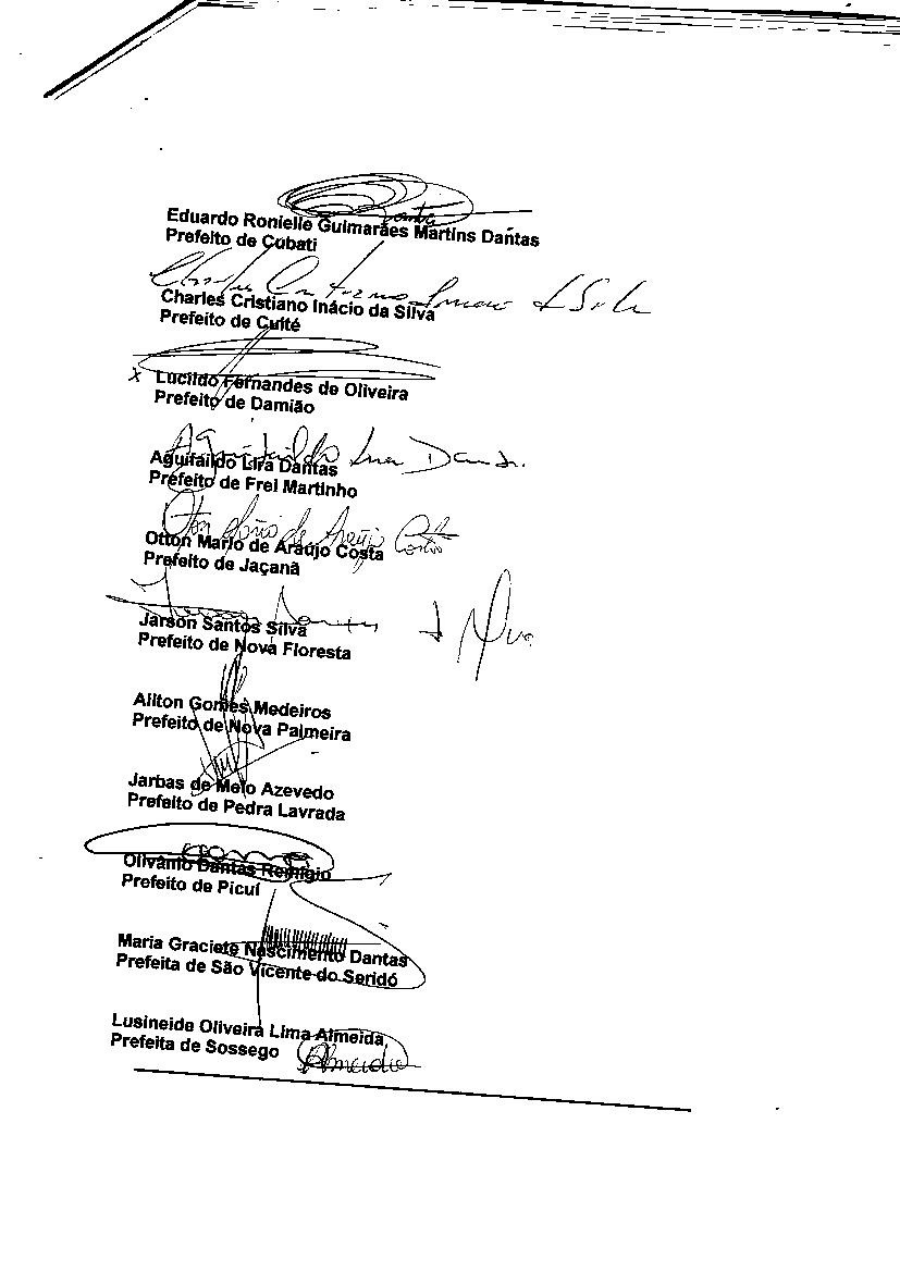 Eduardo Ronielle Guimarães Martins Dantas
Prefeito de Cubati
Charles Cristiano Inácio da Silva
Prefeito de Cuité
x Lucildo Fernandes de Oliveira
Prefeito de Damião
Aguifaildo Lira Dantas
Prefeito de Frei Martinho
Otton Mario de Araújo Costa
Prefeito de Jaçanã
Jarson Santos Silva
Prefeito de Nova Floresta
Ailton Gomes Medeiros
Prefeito de Nova Palmeira
Jarbas de Melo Azevedo
Prefeito de Pedra Lavrada
Olivânio Dantas Remigio
Prefeito de Picuí
Maria Graciete Nascimento Dantas
Prefeita de São Vicente do Seridó
Lusineide Oliveira Lima Almeida
Prefeita de Sossego
Almeida